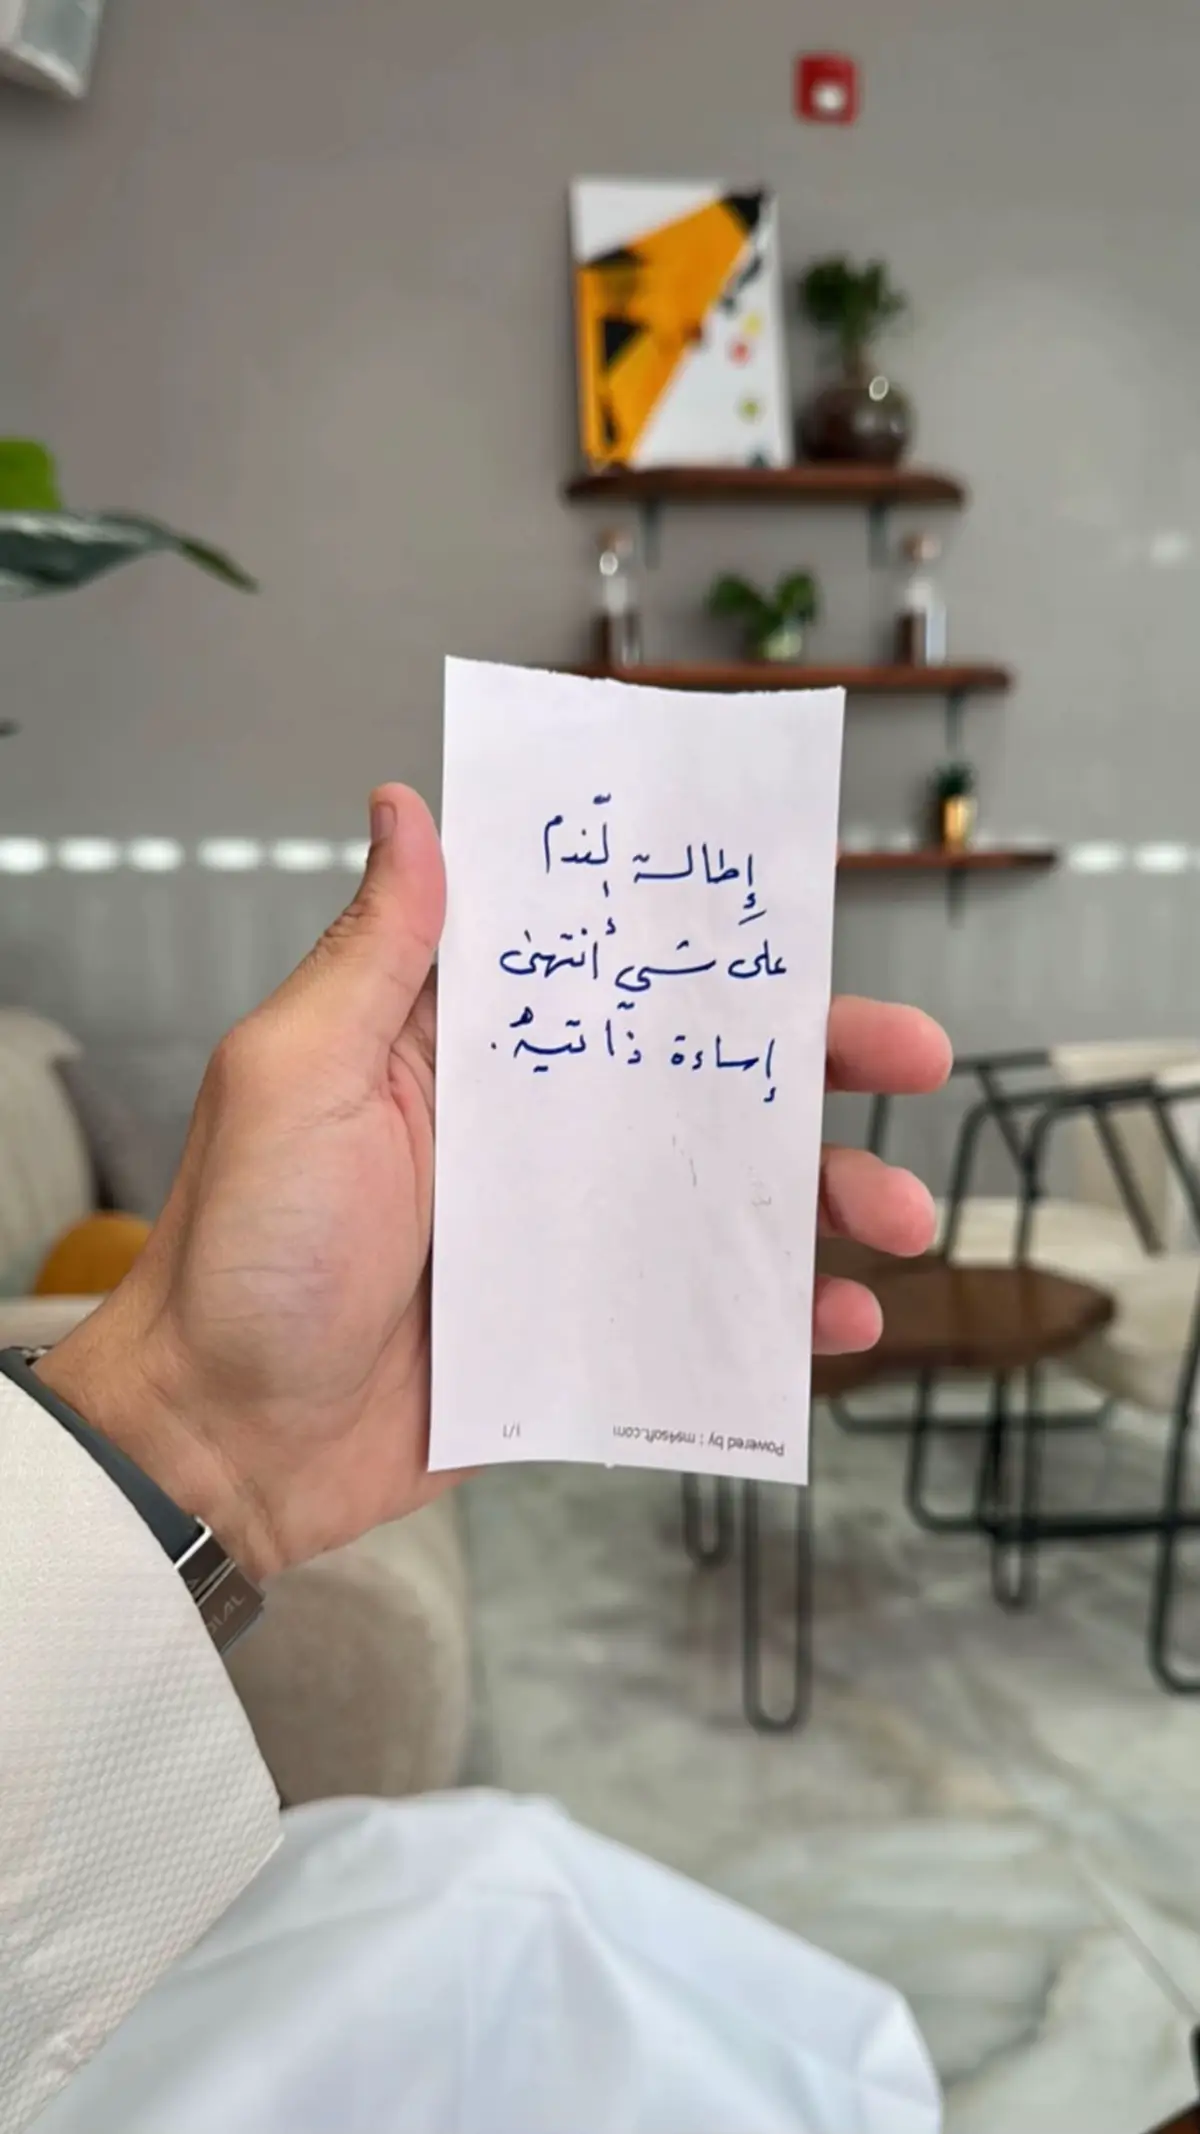 إِطالة لِّندم
على شيء أنتهىٰ
إساءة ذّاتيهُ.
Powered by : ms4soft.com
1/1